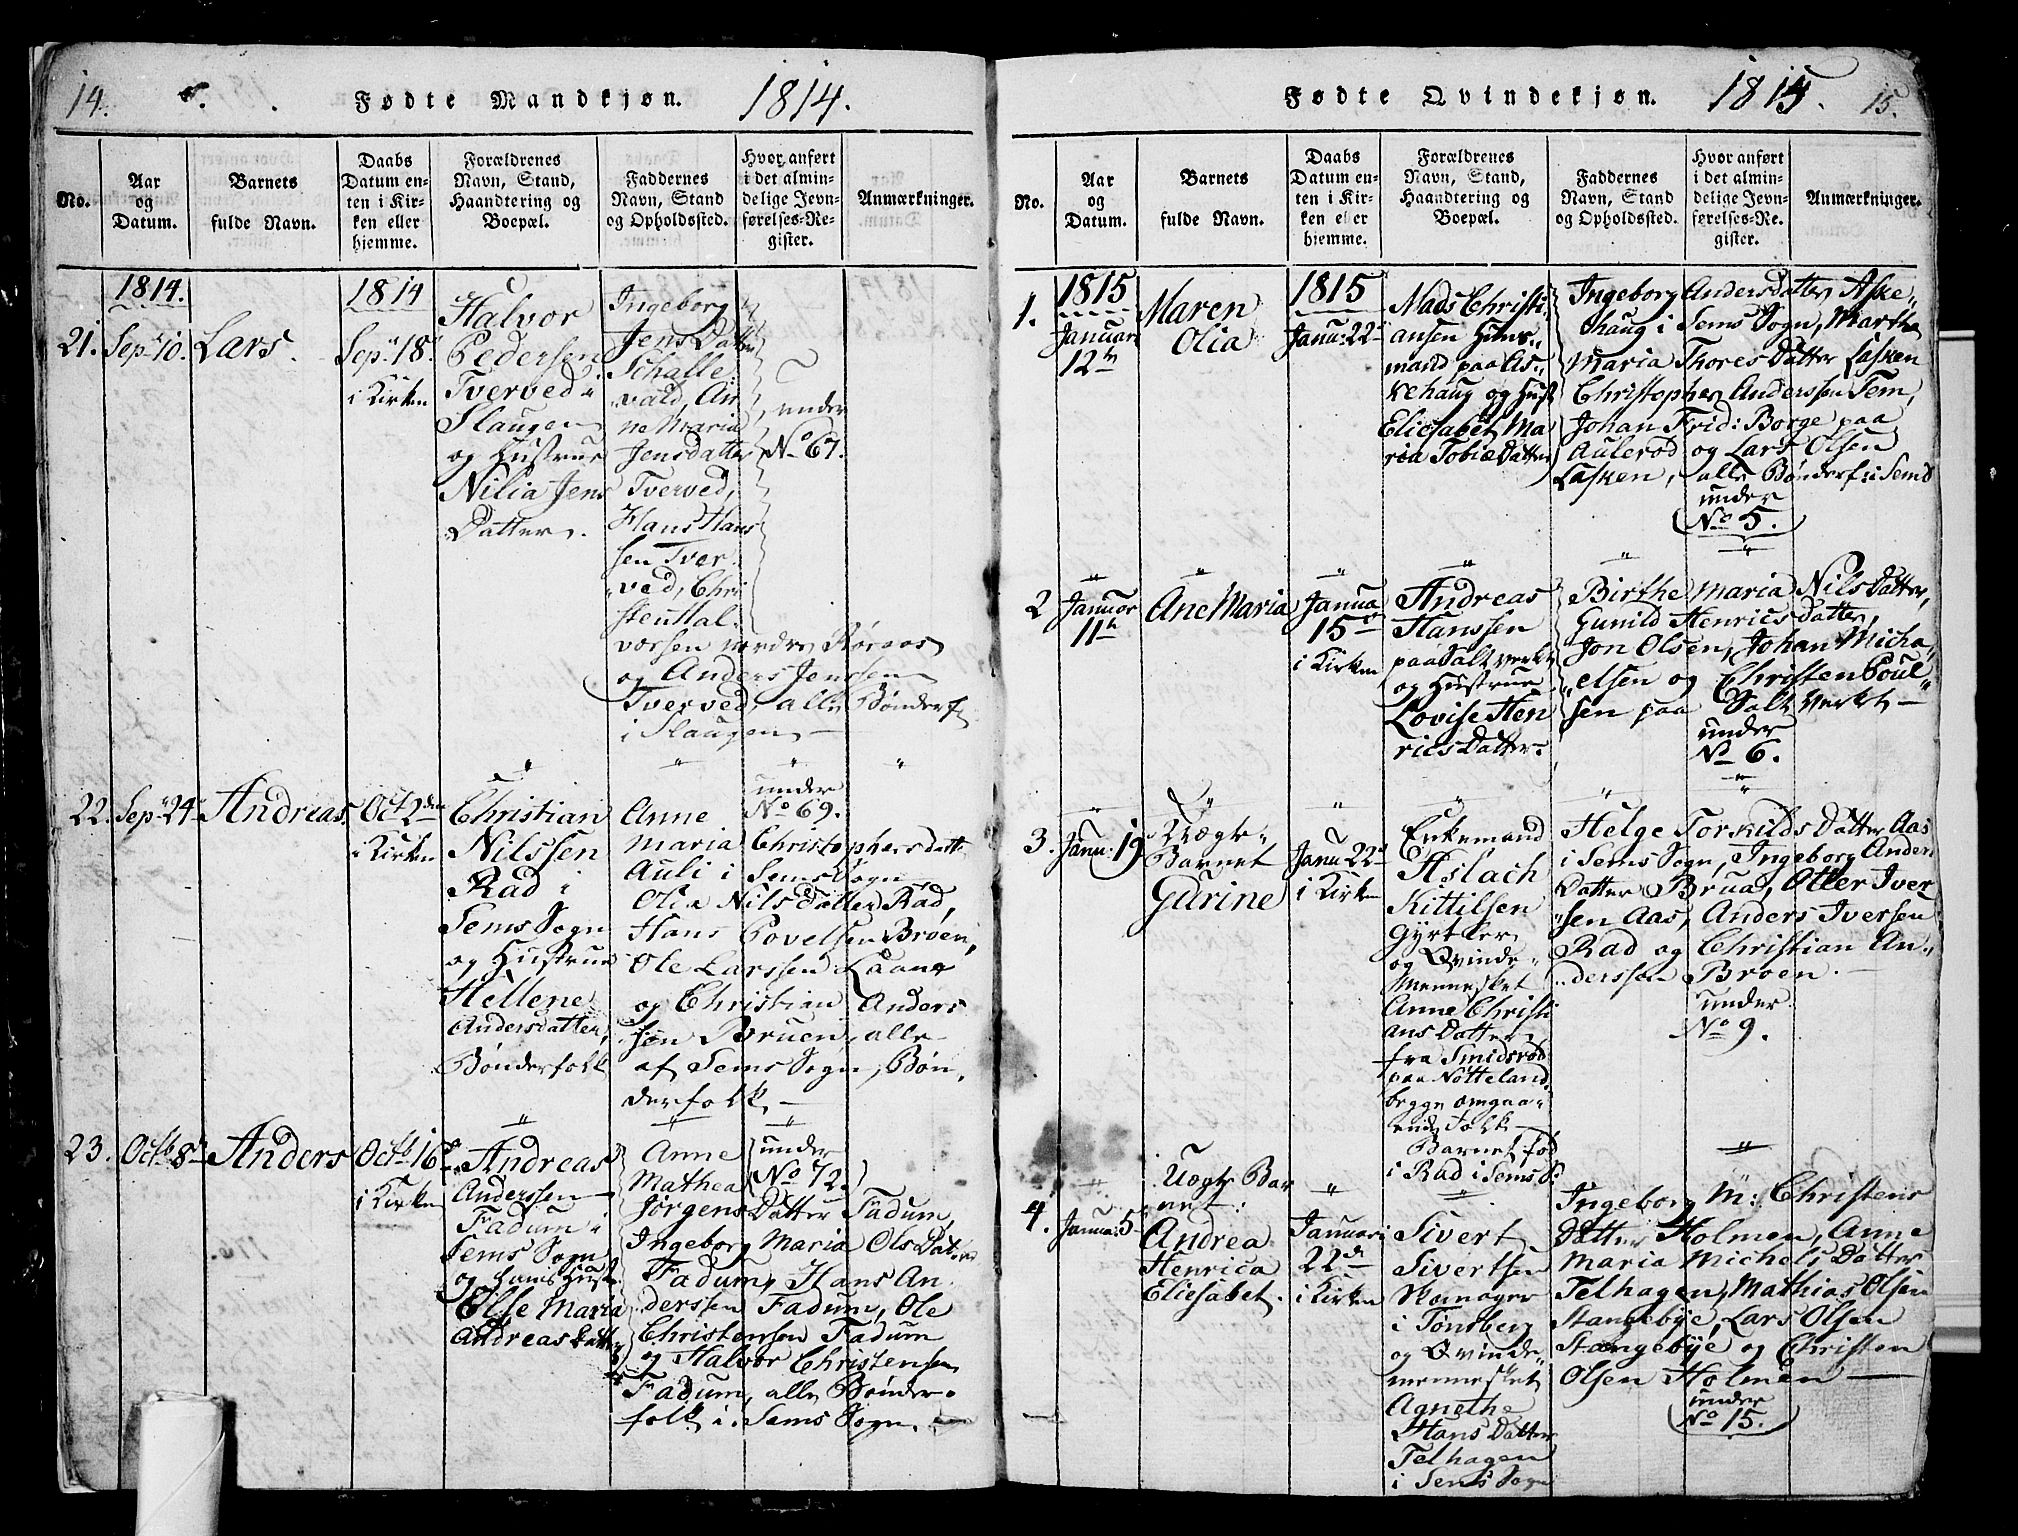 14.
Fødte Mandkjøn.
1814.
No.
Aar
og
Datum.
Barnets
fulde Navn.
Daabs
Datum en-
ten i Kir-
ken eller
hjemme.
Forældrenes
Navn, Stand,
Haandtering og
Boepæl.
Faddernes
Navn, Stand
og Opholdssted.
Hvor anført
i det almin-
delige Jevn-
førelses-Re-
gister.
Anmærkninger.
21.
1814.
Sep. 10.
Lars.
1814
Sep. 18.
i Kirken
Halvor
Pedersen
Tverved i
Slaugen
og Hustrue
Nilia Jens
Datter.
Ingeborg
Jens Datter
Schalle
vald, An
ne Maria
Jensdatter
Tverved,
Hans Hans
sen Tver
ved, Chri
sten Hal
vorsen nordre Røraas
og Anders Jenssen
Tverved, alle Bønderf
i Slaugen
under
No 67.
22.
Sep. 24
Andreas.
Oct 2den
i Kirken
Christian
Nilssen
Rad i
Sems Sogn
og Hustrue
Hellene
Andersdatter,
Bønderfolk
under
No 69.
Anne
Maria Christophersdatt
Auli i Sems Sogn
Olia Nils Datter Rad,
Hans Povelsen Broen,
Ole Larssen Laane
og Christian Anders
søn Bruen, alle
af Sems Sogn, Bøn
derfolk
23.
Octb. 8
Anders
Octb. 16
i Kirken
Andreas
Anderssen
Fadum i
Sems Sogn
og Hustr.
Else Maria
Andreas Datter
under
No 72.
Anne
Mathea
Jørgens Datter Fadum,
Ingeborg Maria Ols Dat.
Fadum, Hans An
derssen Fadum, Ole
Christenssen Fadum
og Halvor Christensen
Fadum, alle Bønder
folk i Sems Sogn.
Fødte Qvindekjøn.
1815.
15.
No.
Aar
og
Datum.
Barnets
fulde Navn.
Daabs
Datum en-
ten i Kir-
ken eller
hjemme.
Forældrenes
Navn, Stand,
Haandtering og
Boepæl.
Faddernes
Navn, Stand
og Opholdssted.
Hvor anført
i det almin-
delige Jevn-
førelses-Re-
gister.
Anmærkninger.
1.
1815
Januari
12te
Maren
Olia
1815
Janu: 22
Mads Christi
ansen Huus-
mand paa As-
kehaug og Hust
Eliesabet Ma
ria Tobiæ Datter
Ingeborg Anders Datter Aske-
haug i Sems Sogn, Marthe
Maria Thores Datter Lasken
Christopher Anderssen Sem,
Johan Frid: Borge paa
Aulerød og Lars Olsen
Lasken, alle Bønderf: i Sems
under
No 5.
2
Januar
11te
Ane Maria
Janua
15
i Kirken
Andreas
Hanssen
paa Saltverket
og Hustrue
Lovise Hen
rics Datter
Birthe Maria Nils Datter,
Gunild Henrics Datter,
Jon Olsen, Johan Micha
elsen og Christen Poul
sen paa Salt Verket
under
No 6.
3.
Janu: 19
Uægte
Barnet
Gurine
Janu 22
i Kirken
Enkemand
Aslach
Kittilsen
Gyrtler
og Qvinde-
Mennesket
Anne Christi
ans Datter
fra Smidsrød
paa Nøtteland
begge omgaa-
ende Folk
Barnet fød
i Rad i Sems S:
Helge Torkilds Datter Aas
i Sems Sogn, Ingeborg Anders
Datter Brua, Otter Iver
sen Aas, Anders Iversen
Rad og Christian An
derssen Broen.
under
No 9.
4.
Janua: 5
Uægte Bar
net:
Andrea
Henrica
Eliesabet.
Januari
22
i Kirken
Sivert
Sivertsen
Skomager
i Tønsberg
og Qvinde-
mennesket
Agnethe
Hans Datter
Telhagen
i Sems Sogn
Ingeborg M: Christens
Datter Holmen, Anne
Maria Michels Datter
Telhagen, Mathias Olsen
Stangebye, Lars Olsen
Stangebye og Christen
Olsen Holmen
under
No 15.